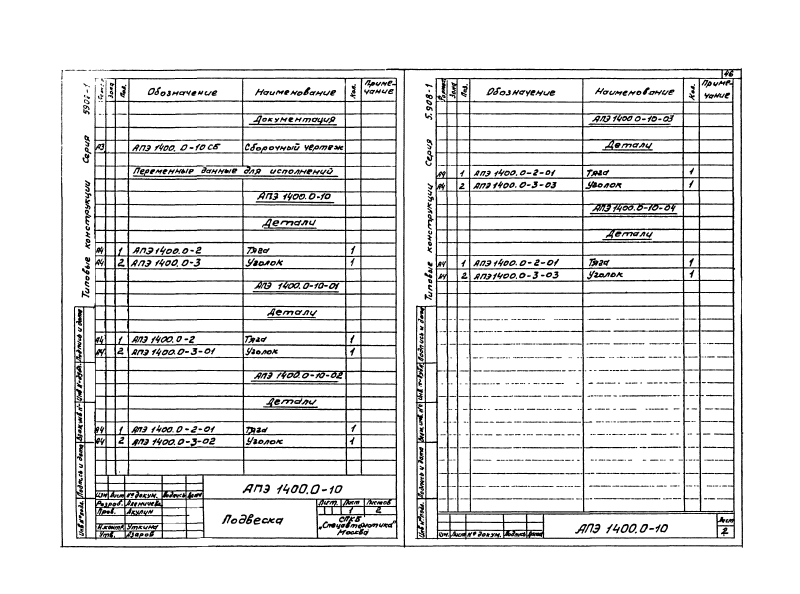 Типовые конструкции Серия 5.908-1
Формат Зона Поз. Обозначение Наименование Кол. Приме-
чание
Документация
А3 АПЭ 1400.0-10 СБ Сборочный чертеж
Переменные данные для исполнений
АПЭ 1400.0-10
Детали
А4 1 АПЭ 1400.0-2 Тяга 1
А4 2 АПЭ 1400.0-3 Уголок 1
АПЭ 1400.0-10-01
Детали
А4 1 АПЭ 1400.0-2 Тяга 1
А4 2 АПЭ 1400.0-3-01 Уголок 1
АПЭ 1400.0-10-02
Детали
А4 1 АПЭ 1400.0-2-01 Тяга 1
А4 2 АПЭ 1400.0-3-02 Уголок 1
Инв.№ подл. Подпись и дата Взам.инв.№ Инв.№ дубл. Подпись и дата
Изм. Лист № докум. Подпись Дата
Разраб.
Пров. Акулин
Н.контр. Уткина
Утв. Азаров
АПЭ 1400.0-10
Подвеска
Лит. Лист Листов
1 2
СПКБ
„Спецавтоматика"
Москва
46
Типовые конструкции Серия 5.908-1
Формат Зона Поз. Обозначение Наименование Кол. Приме-
чание
АПЭ 1400.0-10-03
Детали
А4 1 АПЭ 1400.0-2-01 Тяга 1
А4 2 АПЭ 1400.0-3-03 Уголок 1
АПЭ 1400.0-10-04
Детали
А4 1 АПЭ 1400.0-2-01 Тяга 1
А4 2 АПЭ 1400.0-3-03 Уголок 1
Инв.№ подл. Подпись и дата Взам.инв.№ Инв.№ дубл. Подпись и дата
Изм. Лист № докум. Подпись Дата
АПЭ 1400.0-10
Лист
2